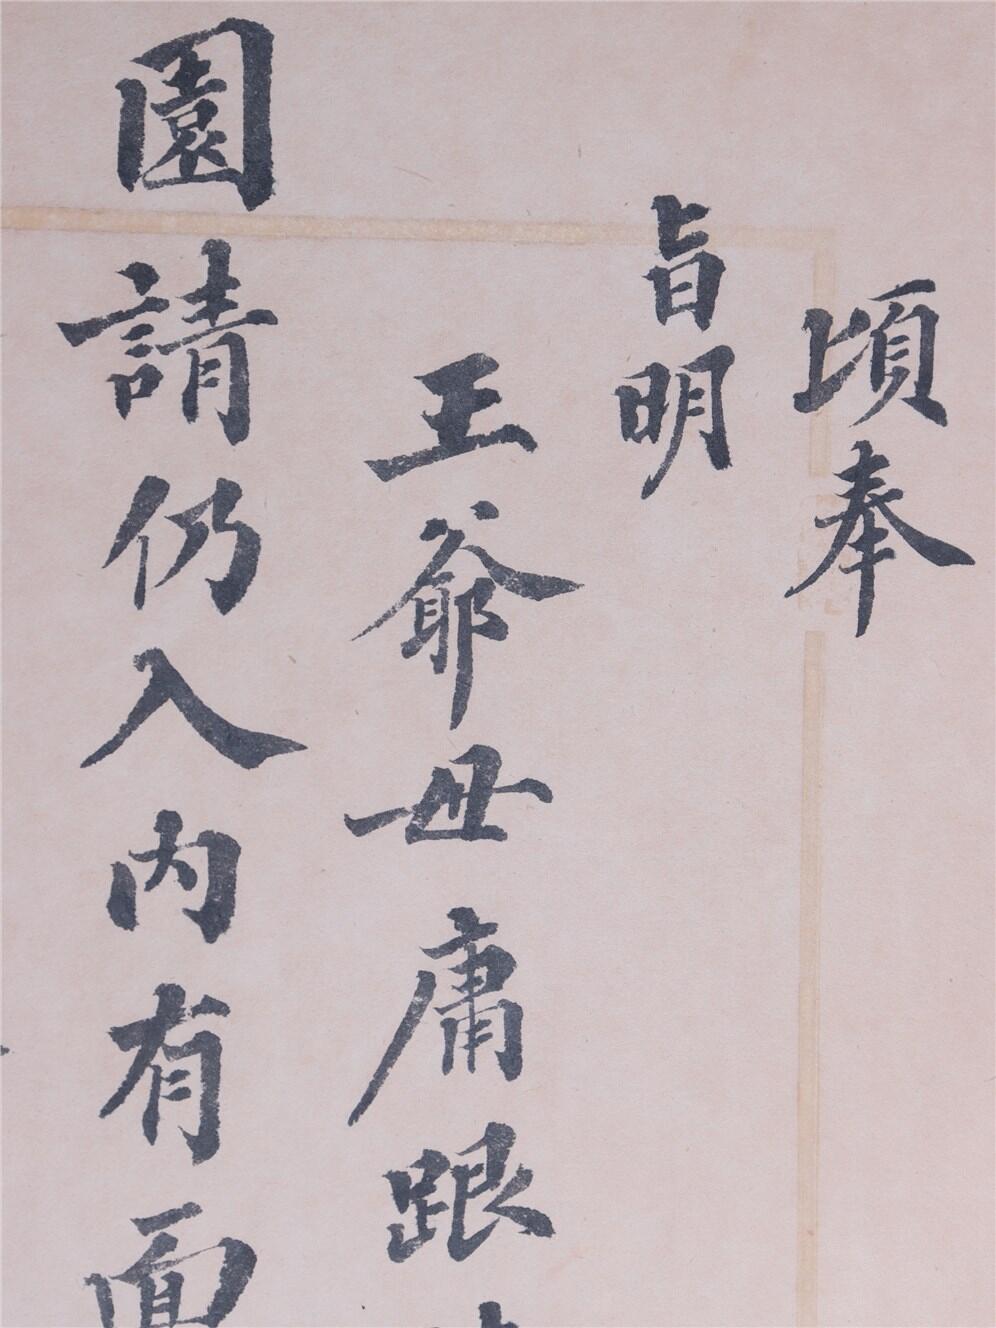 頃奉
旨明
王爺毋庸跟
園請仍入內有面